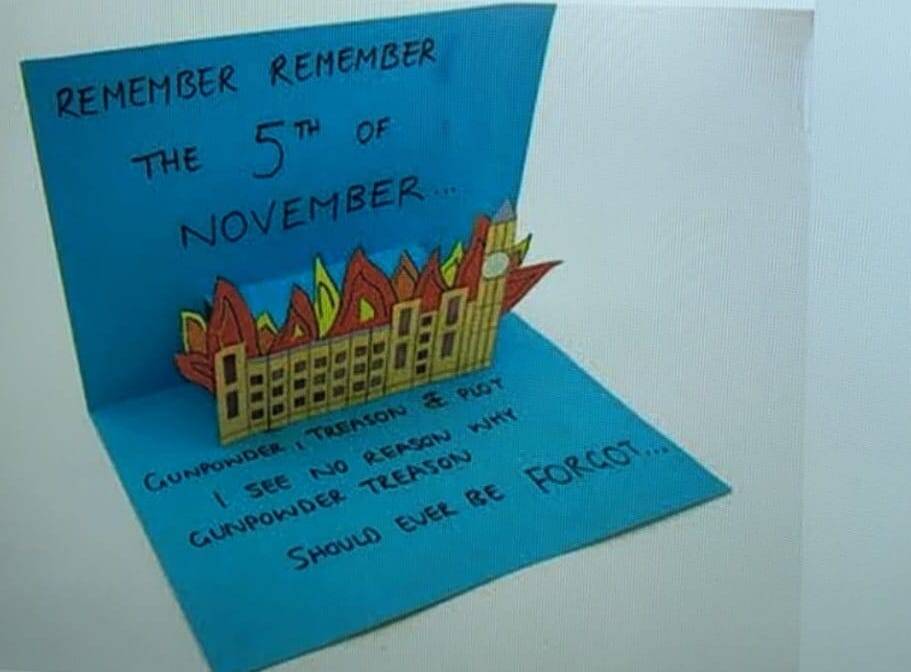 REMEMBER REMEMBER
THE 5TH OF
NOVEMBER...
GUNPOWDER, TREASON & PLOT
I SEE NO REASON WHY
GUNPOWDER TREASON
SHOULD EVER BE FORGOT...